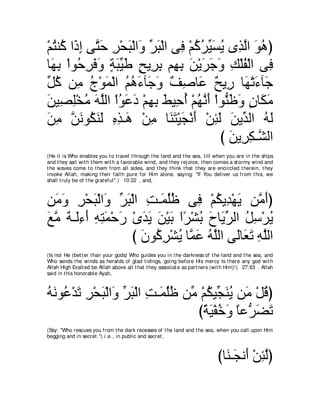 هُوَ الَّذِي يُسَيِّرُكُمْ فِي الْبَرِّ وَالْبَحْرِ حَتَّى إِذَا كُنْتُمْ)
فِي الْفُلْكِ وَجَرَيْنَ بِهِم بِرِيحٍ طَيِّبَةٍ وَفَرِحُواْ بِهَا
جَآءَتْهَا رِيحٌ عَاصِفٌ وَجَآءَهُمُ الْمَوْجُ مِن كُلِّ
مَكَانٍ وَظَنُّواْ أَنَّهُمْ أُحِيطَ بِهِمْ دَعَوُاْ اللَّهَ مُخْلِصِينَ
لَهُ الدِّينَ لَئِنْ أَنْجَيْتَنَا مِنْ هَـذِهِ لَنَكُونَنَّ مِنَ
( الشَّـكِرِينَ
(He it is Who enables you to travel through the land and the sea, till when you are in the ships
and they sail with them with a favorable wind, and they rejoice, then comes a stormy wind and
the waves come to them from all sides, and they think that they are encircled therein, they
invoke Allah, making their faith pure for Him alone, saying: "If You deliver us from this, we
shall truly be of the grateful".) 10:22 , and,
أَمَّن يَهْدِيكُمْ فِي ظُلُمَـتِ الْبَرِّ وَالْبَحْرِ وَمَن)
يُرْسِلُ الرِّيَاحَ بُشْرًا بَيْنَ يَدَىْ رَحْمَتِهِ أَءِلَـهٌ مَّعَ
( اللَّهِ تَعَالَى اللَّهُ عَمَّا يُشْرِكُونَ
(Is not He (better than your gods) Who guides you in the darkness of the land and the sea, and
Who sends the winds as heralds of glad tidings, going before His mercy Is there any god with
Allah High Exalted be Allah above all that they associate as partners (with Him)!) 27:63 . Allah
said in this honorable Ayah,
قُلْ مَن يُنَجِّيكُمْ مِّن ظُلُمَـتِ الْبَرِّ وَالْبَحْرِ تَدْعُونَهُ)
(تَضَرُّعاً وَخُفْيَةً
(Say: "Who rescues you from the dark recesses of the land and the sea, when you call upon Him
begging and in secret.") i.e., in public and secret,
(لَّئِنْ أَنجَـنَا)